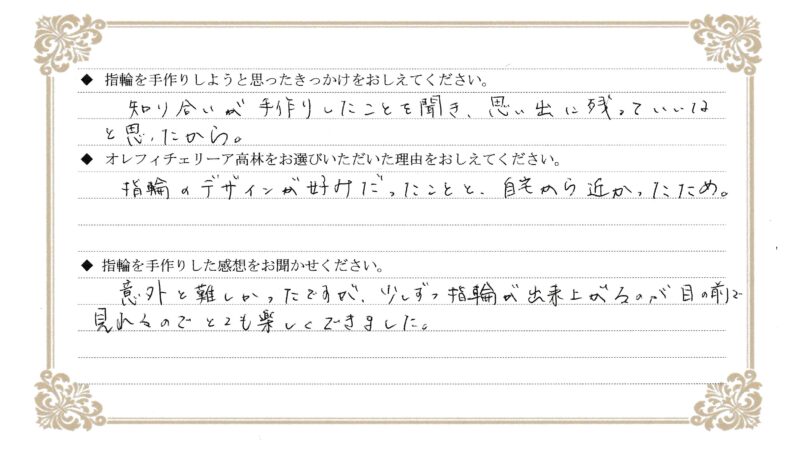 ◆ 指輪を手作りしようと思ったきっかけをおしえてください。
知り合いが手作りしたことを聞き、思い出に残っていいな
と思ったから。
◆ オレフィチェリーア高林をお選びいただいた理由をおしえてください。
指輪のデザインが好みだったことと、自宅から近かったため。
◆ 指輪を手作りした感想をお聞かせください。
意外と難しかったですが、少しずつ指輪が出来上がるのが目の前で
見れるのでとても楽しくできました。